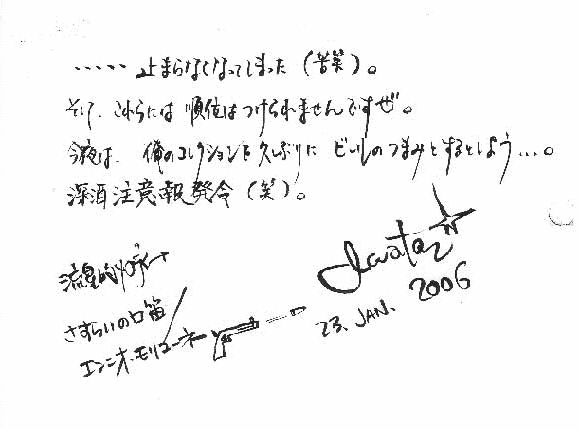 ・・・・・止まらなくなってしまった（苦笑）。
そして、これらには順位はつけられませんですぜ。
今夜は、俺のコレクションを久しぶりにビールのつまみとするとしよう…。
深酒注意報発令（笑）。
さすらいの口笛
エンニオ・モリコーネ
23. JAN. 2006